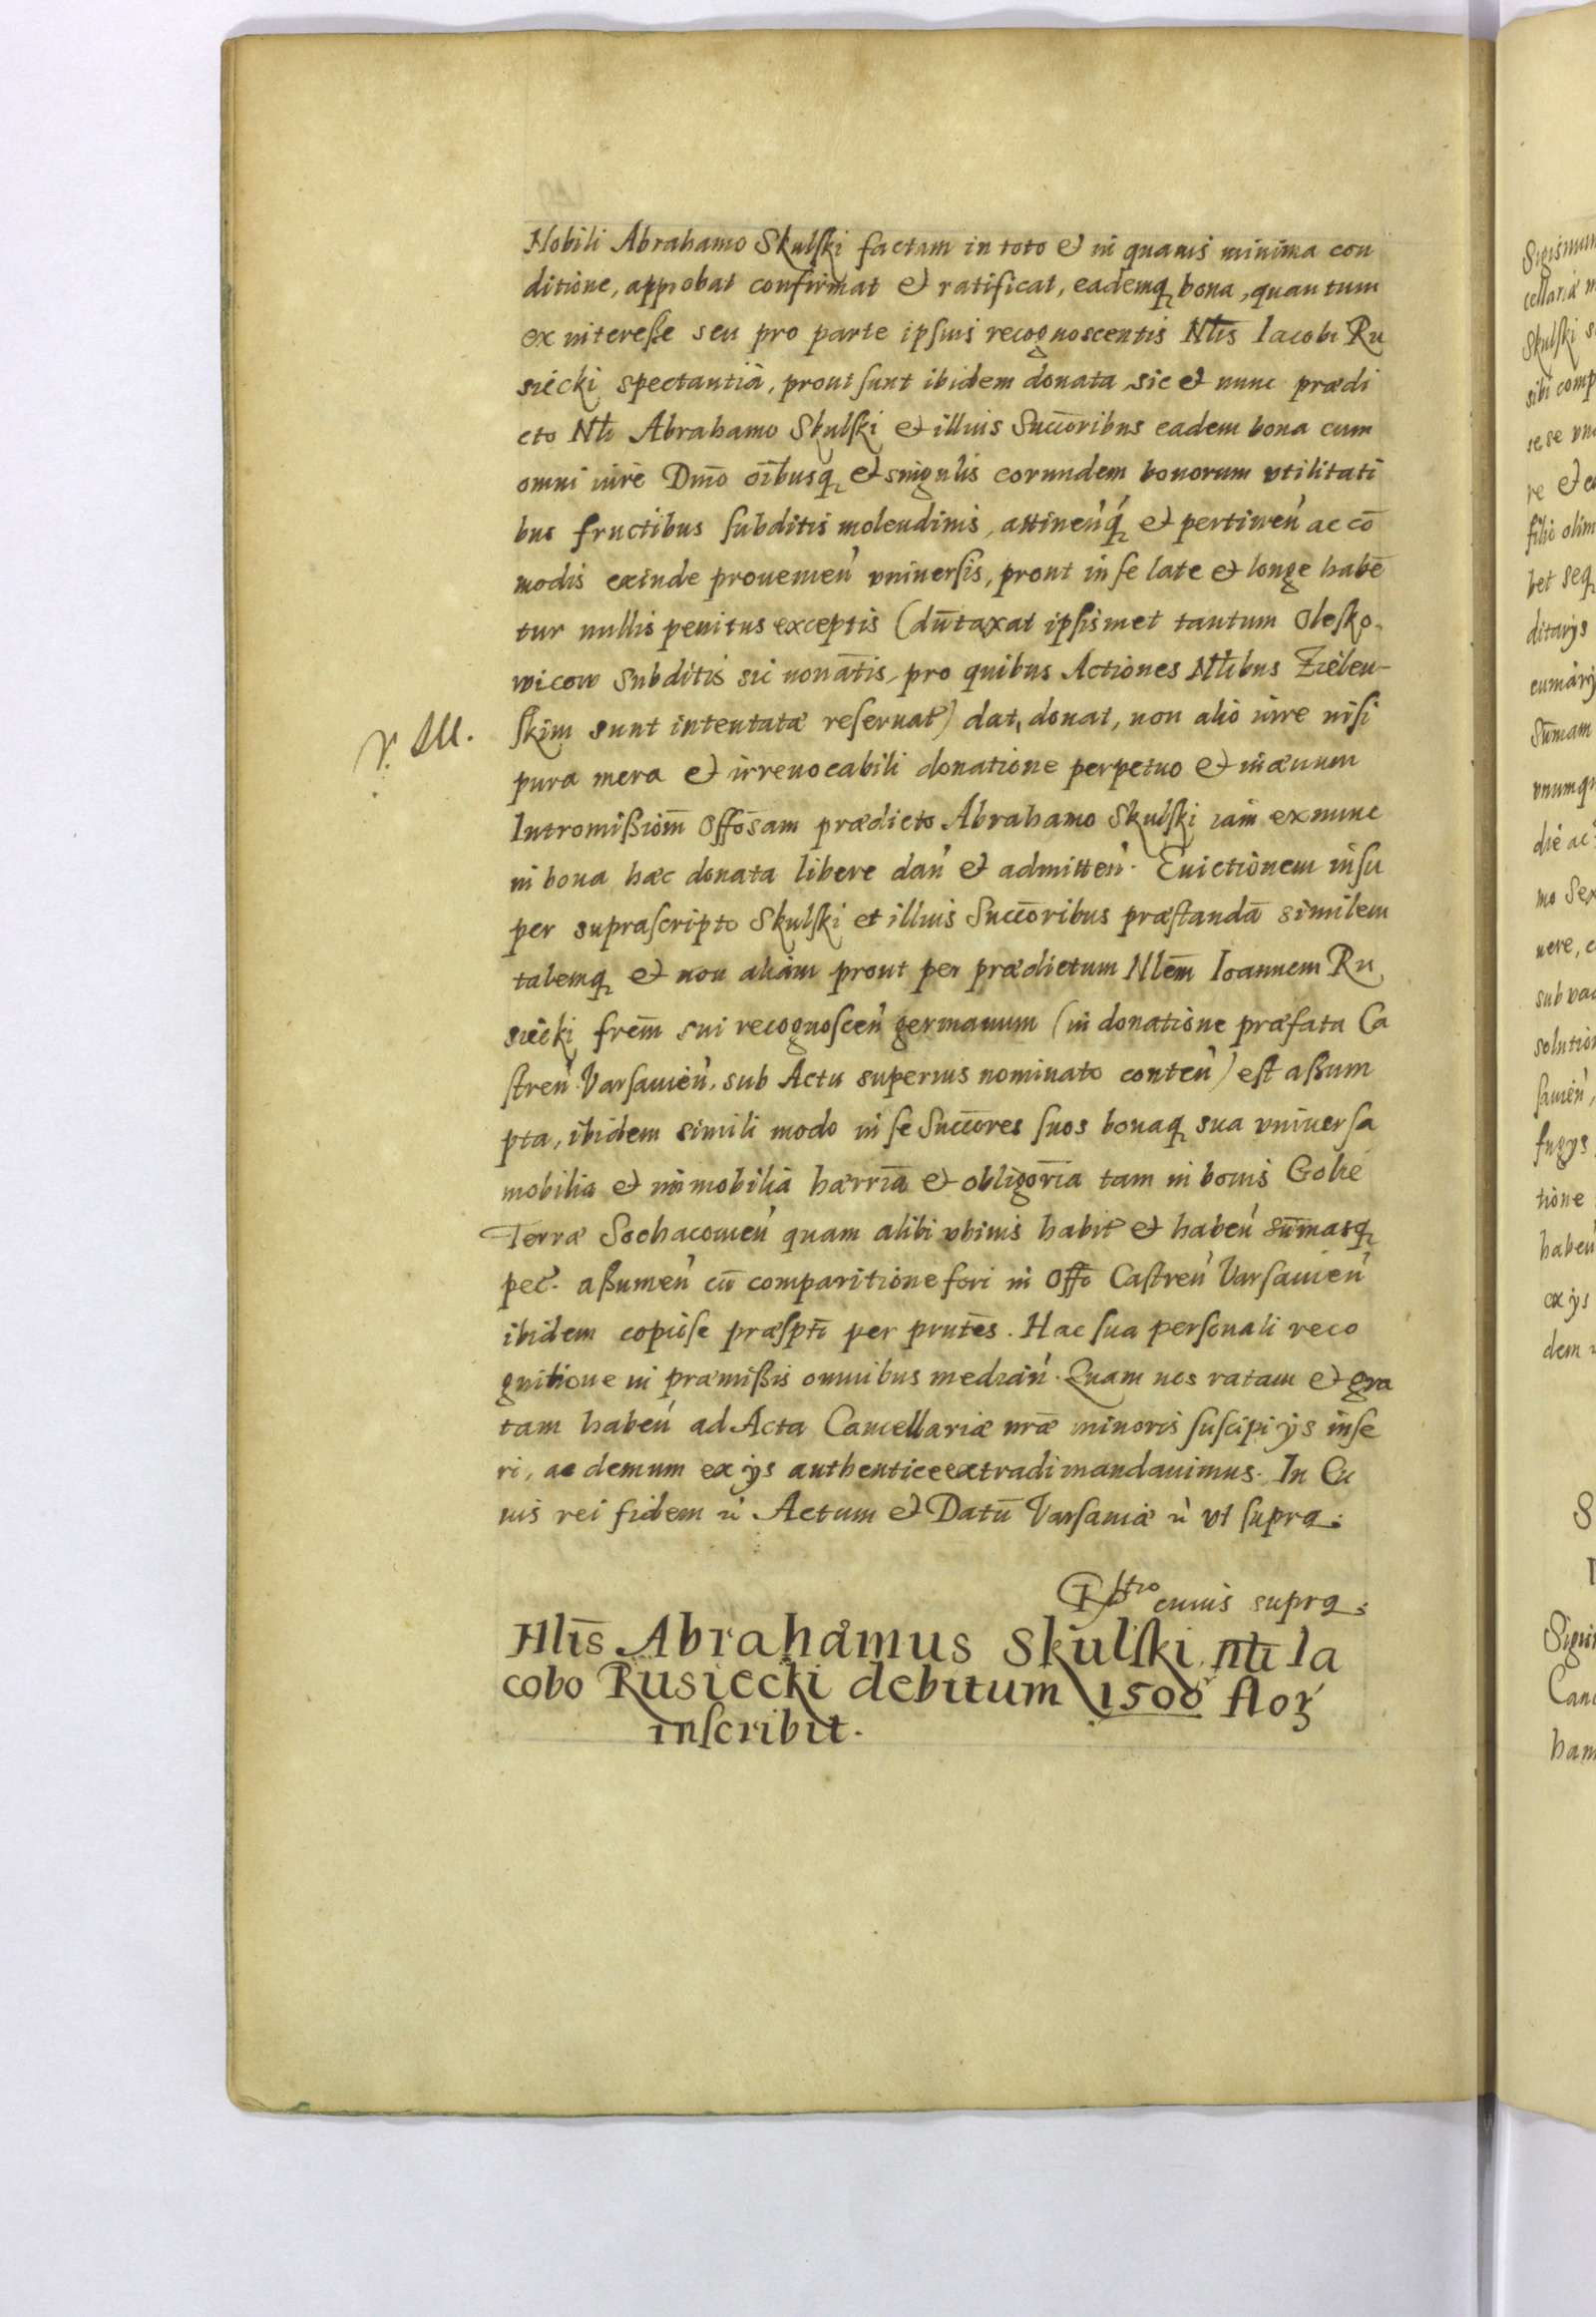 Nobili Abrahamo Skulſki factam in toto et in quavis minima con
ditione, approbat confirmat et ratificat, eademq bona, quantum
ex intereſse seu pro parte ipſius recognoscentis Nlis Iacobi Ru
siecki spectantia, prout ſunt ibidem donata sic et nunc prædi
cto Nli Abrahamo Skulſki et illius Succoribus eadem bona cum
omni iure Dmo oibusq et singulis eorundem bonorum vtilitati
bus fructibus ſubditis molendinis, attinen'q et pertinen' ac co
modis exinde prouenien' vniuerſis, prout in ſe late et longe habe
tur nullis penitus exceptis (dutaxat ipſismet tantum Oleſko-
wicow Subditis sic nonatis, pro quibus Actiones Nlibus Zielen-
ſkim sunt intentatæ reſeruat) dat, donat, non alio iure niſi
pura mera et irreuocabili donatione perpetuo et in æuum
Intromiſsiom Offosam prædicto Abrahamo Skulſki iam ex nunc
in bona hæc donata libere dan' et admitten'. Euictionem inſu
per supraſcripto Skulſki et illius Succoribus præſtanda similem
talemq et non aliam prout per prædictum Nlem Ioannem Ru
siecki frem sui recognoſcen' germanum (in donatione præfata Ca
ſtren' Varſauien', sub Actu superius nominato conten') eſt aſsum
pta, ibidem simili modo in ſe Succores ſuos bonaq sua vniuerſa
mobilia et immobilia hærria et obligoria tam in bonis Golie
Terræ Sochacouien' quam alibi vbiuis habit et haben' sumasq
pec. aſsumen' cu comparitione fori in Offo Caſtren' Varſauien'
ibidem copioſe præſpti per prntes. Hac ſua perſonali reco
gnitione in præmiſsis omnibus median'. Quam nos ratam et gra
tam haben' ad Acta Cancellariæ nræ minoris ſuſcipi ijs inſe
ri, ac demum ex ijs authentice extradi mandauimus. In Cu
ius rei fidem Actum et Datu Varſauiæ vt ſupra.
cuius supra.
Nlis Abrahamus Skulſki nli Ia
cobo Rusiecki debitum 1500 flor
inſcribit.